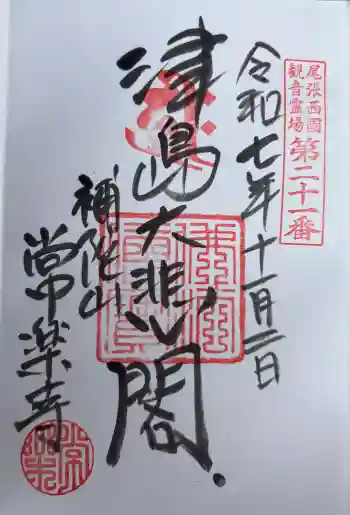 尾張西國
観音霊場
第二十一番
令和七年十一月二日
津島大悲閣
補陀山
常楽寺